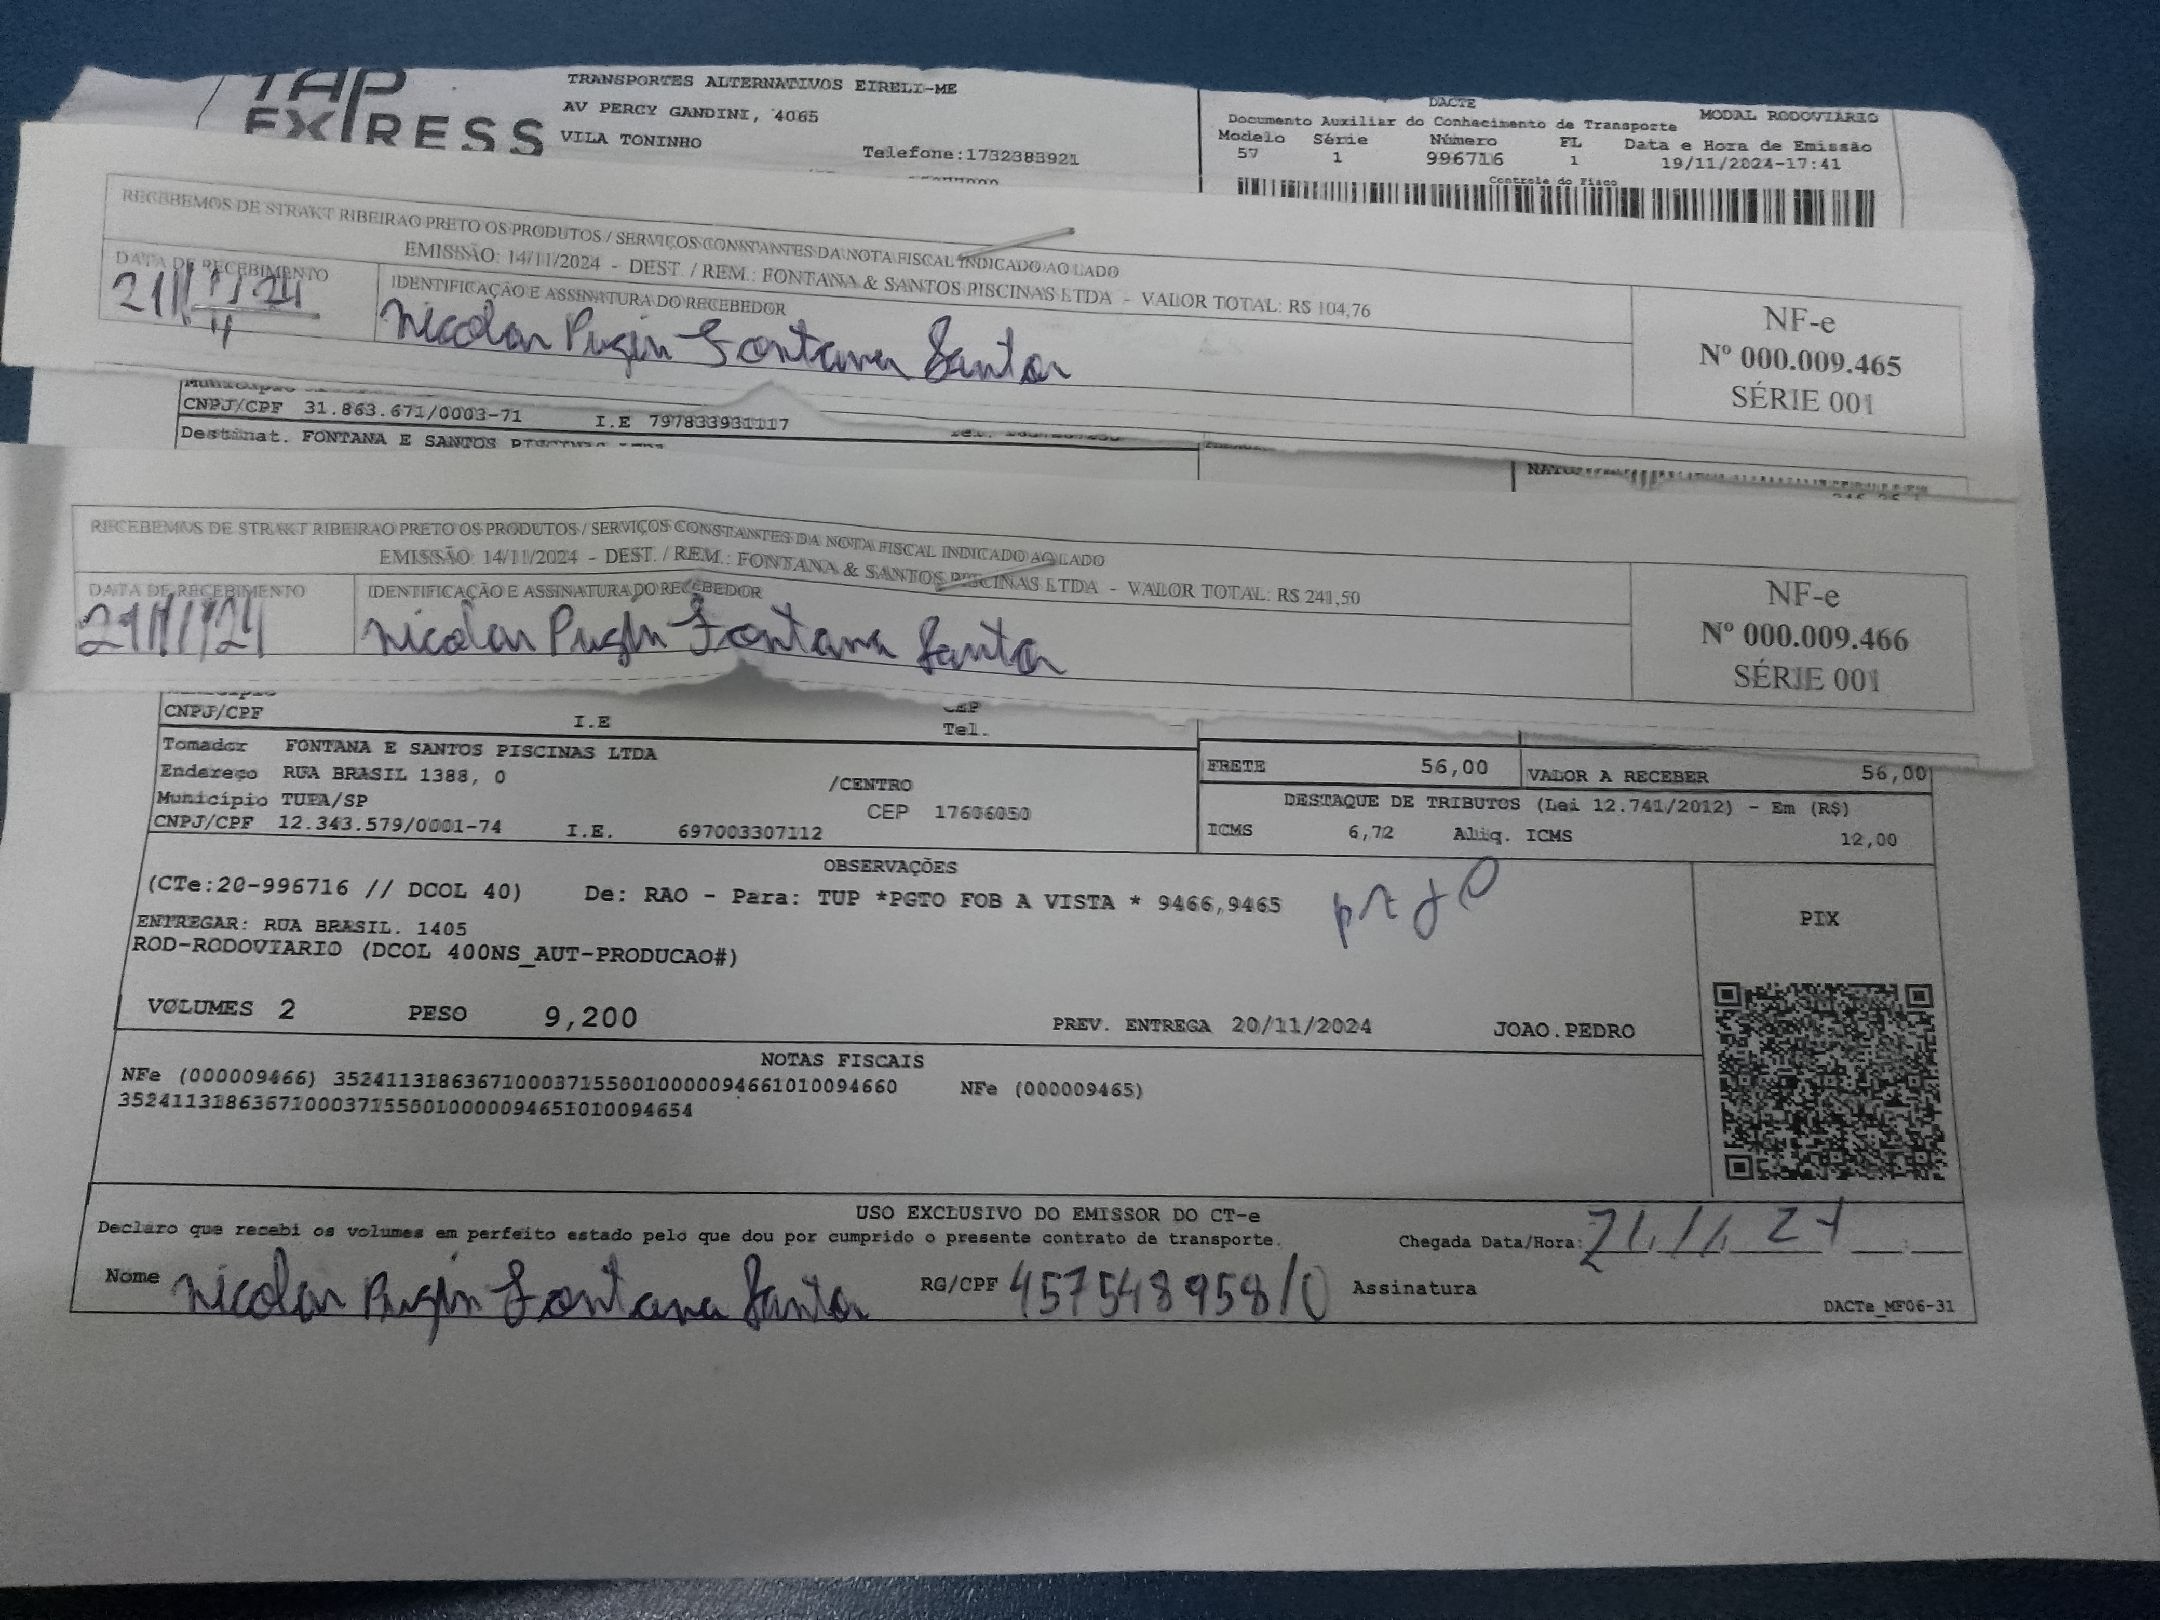 TAP
EXPRESS
TRANSPORTES ALTERNATIVOS EIRELI-ME
AV PERCY GANDINI, 4065
VILA TONINHO
Telefone:1732383921
DACTE
MODAL RODOVIARIO
Documento Auxiliar do Conhecimento de Transporte
Modelo Série Número FL Data e Hora de Emissão
57 1 996716 1 19/11/2024-17:41
Controle do Fisco
RECEBEMOS DE STRAKT RIBEIRAO PRETO OS PRODUTOS / SERVIÇOS CONSTANTES DA NOTA FISCAL INDICADO AO LADO
EMISSÃO: 14/11/2024 - DEST. / REM.: FONTANA & SANTOS PISCINAS LTDA - VALOR TOTAL: R$ 104,76
DATA DE RECEBIMENTO
IDENTIFICAÇÃO E ASSINATURA DO RECEBEDOR
Nicolas Pugin Fontana Santos
NF-e
Nº 000.009.465
SÉRIE 001
Município
CNPJ/CPF 31.863.671/0003-71 I.E 797833931117
Destinat. FONTANA E SANTOS
RECEBEMOS DE STRAKT RIBEIRAO PRETO OS PRODUTOS / SERVIÇOS CONSTANTES DA NOTA FISCAL INDICADO AO LADO
EMISSÃO: 14/11/2024 - DEST. / REM.: FONTANA & SANTOS PISCINAS LTDA - VALOR TOTAL: R$ 241,50
DATA DE RECEBIMENTO
IDENTIFICAÇÃO E ASSINATURA DO RECEBEDOR
21/11/24
Nicolas Pugin Fontana Santos
NF-e
Nº 000.009.466
SÉRIE 001
Município
CEP
CNPJ/CPF I.E Tel.
Tomador FONTANA E SANTOS PISCINAS LTDA
Endereço RUA BRASIL 1388, 0 /CENTRO
Município TUPA/SP CEP 17606050
CNPJ/CPF 12.343.579/0001-74 I.E. 697003307112
FRETE 56,00 VALOR A RECEBER 56,00
DESTAQUE DE TRIBUTOS (Lei 12.741/2012) - Em (R$)
ICMS 6,72 Aliq. ICMS 12,00
OBSERVAÇÕES
(CTe:20-996716 // DCOL 40) De: RAO - Para: TUP *PGTO FOB A VISTA * 9466,9465
ENTREGAR: RUA BRASIL. 1405
ROD-RODOVIARIO (DCOL 400NS_AUT-PRODUCAO#)
PIX
VOLUMES 2 PESO 9,200 PREV. ENTREGA 20/11/2024 JOAO.PEDRO
NOTAS FISCAIS
NFe (000009466) 35241131863671000371550010000094661010094660 NFe (000009465)
35241131863671000371550010000094651010094654
USO EXCLUSIVO DO EMISSOR DO CT-e
Declaro que recebi os volumes em perfeito estado pelo que dou por cumprido o presente contrato de transporte.
Chegada Data/Hora: 21/11/24
Nome Nicolas Pugin Fontana Santos RG/CPF 457548958/0 Assinatura
DACTe_MF06-31